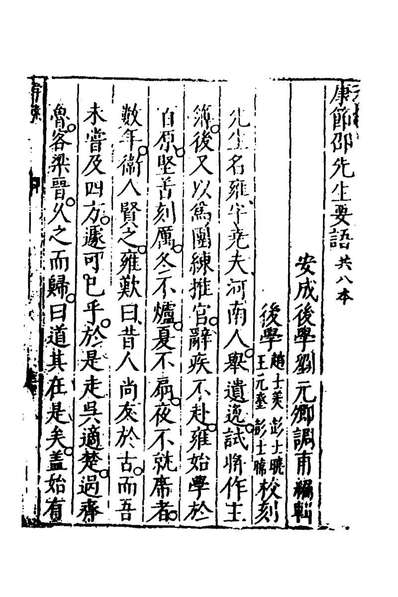 康節邵先生要語共八本
安成後學劉元卿調甫編輯
後學趙士美彭士曉
王元丞彭士驥校刻
先生名雍字堯夫河南人舉遺逸試將作主
簿後又以爲團練推官辭疾不赴雍始學於
百原堅苦刻厲冬不爐夏不扇夜不就席者
數年衛人賢之雍歎曰昔人尚友於古而吾
未嘗及四方遽可已乎於是走吳適楚過齊
魯客梁晉久之而歸曰道其在是矣蓋始有